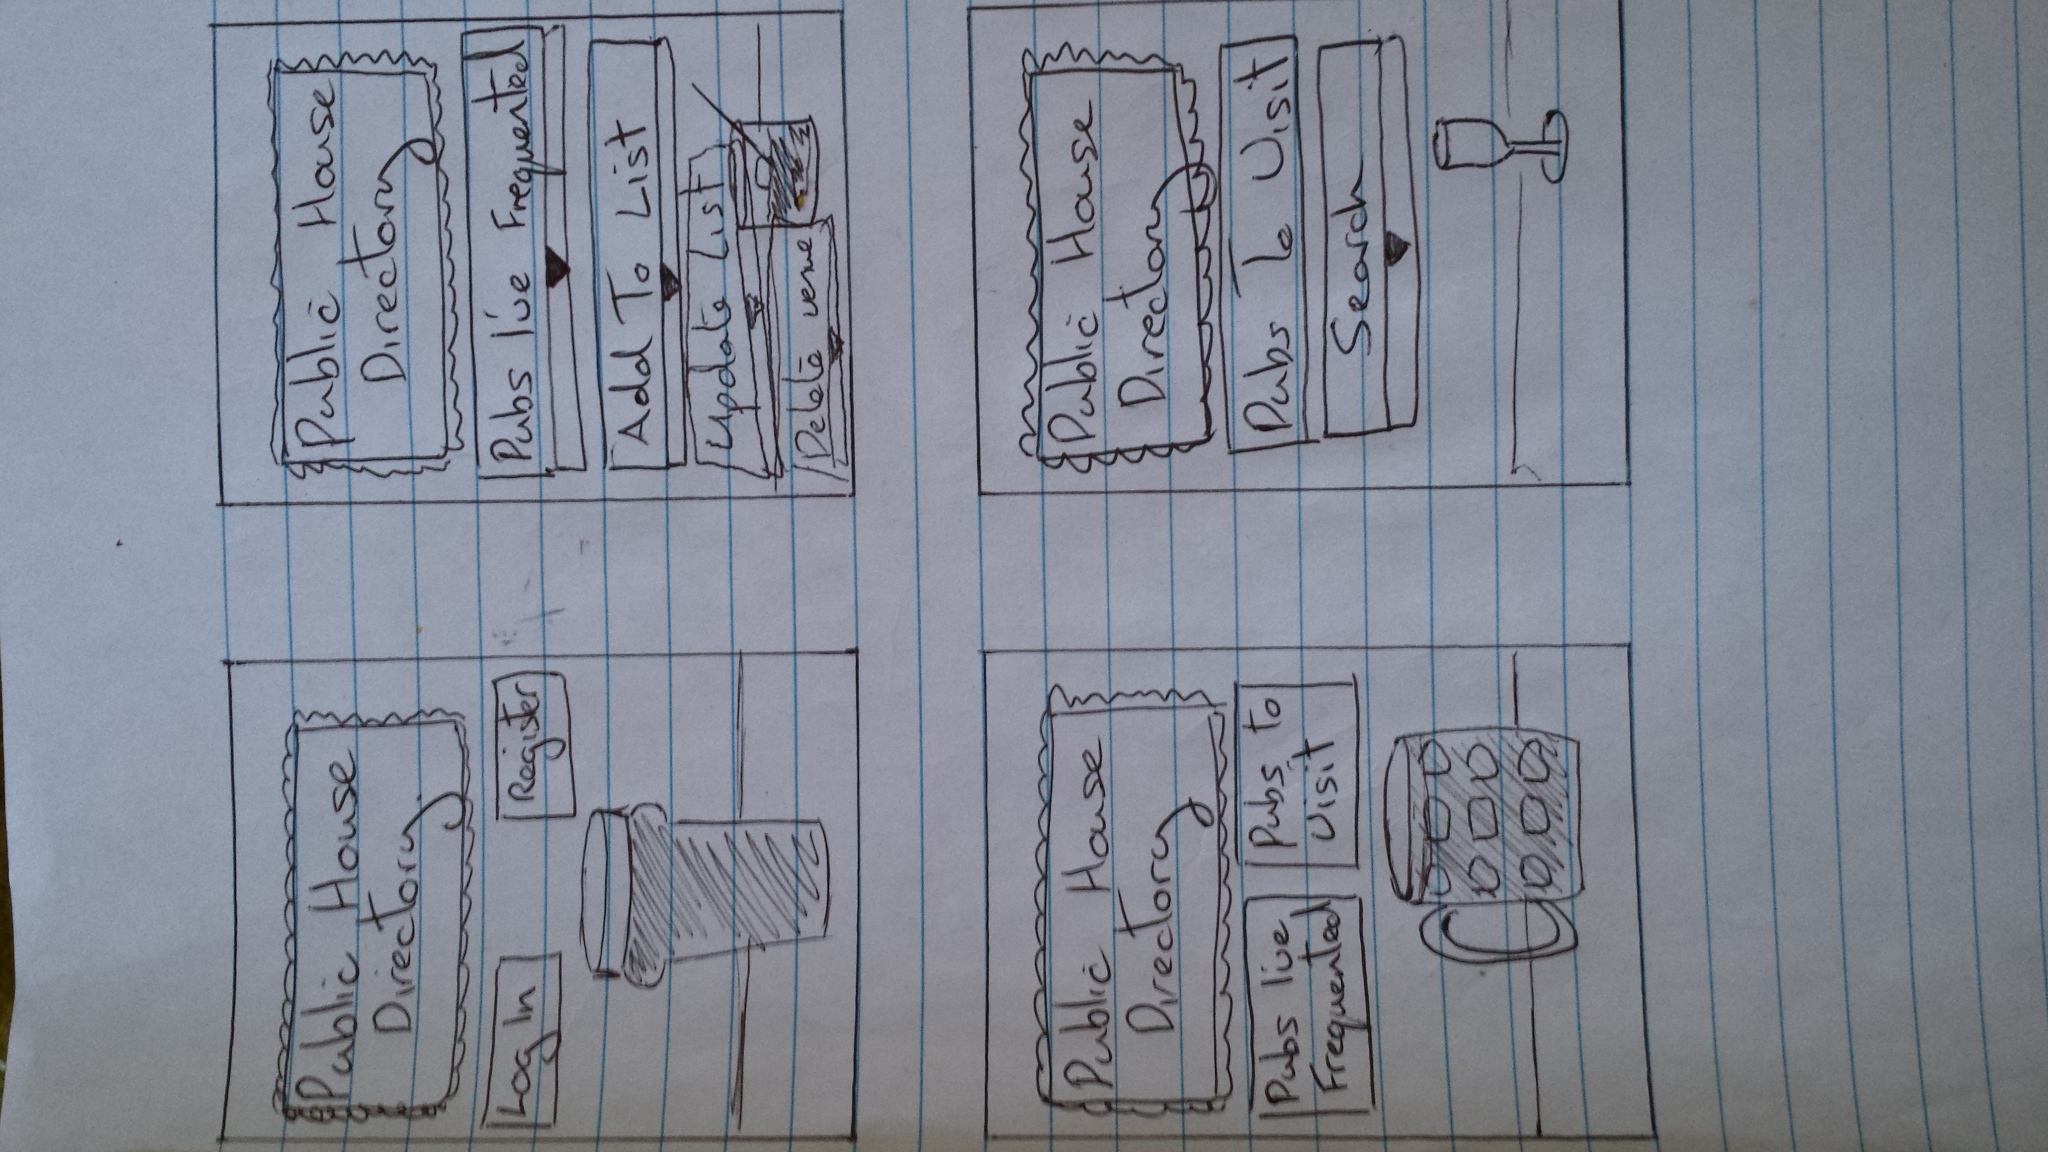 Public House
Directory.
Log In
Register
Public House
Directory
Pubs I've Frequented
Add To List
Update List
Delete venue
Public House
Directory
Pubs I've
Frequented
Pubs to
Visit
Public House
Directory
Pubs To Visit
Search